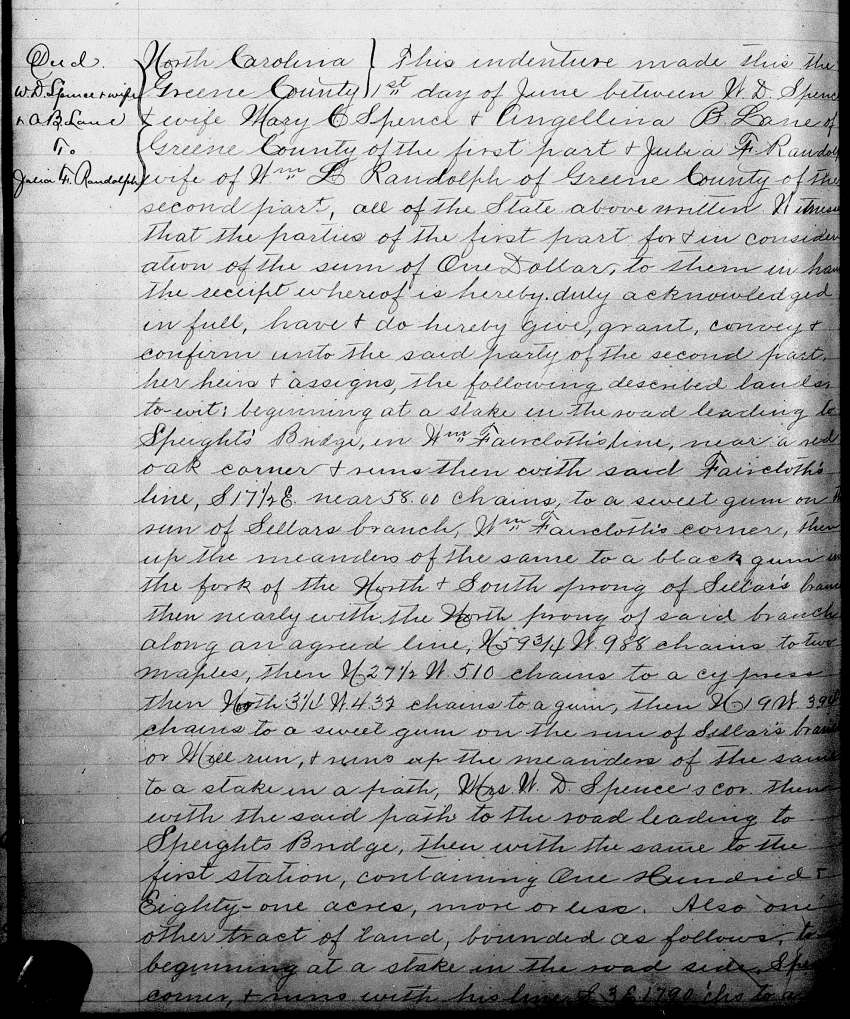 Deed.
W. D. Spence & wife
& A. B. Lane
To
Julia F. Randolph
North Carolina } This indenture made this the
Greene County 1st day of June between W. D. Spence
& wife Mary C Spence & Angellina B. Lane of
Greene County of the first part & Julia F Randolph
wife of Wm L Randolph of Greene County of the
second part, all of the State above written Witness
that the parties of the first part for & in consider
ation of the sum of One Dollar, to them in han
the receipt whereof is hereby duly acknowledged
in full, have & do hereby give, grant, convey &
confirm unto the said party of the second part,
her heirs & assigns, the following described lands
to-wit; beginning at a stake in the road leading to
Speights Bridge, in Wm Faircloth's line, near a red
oak corner & runs then with said Faircloth's
line, S 17½ E. near 58.00 chains, to a sweet gum on
run of Sellars branch, Wm Faircloth's corner, then
up the meanders of the same to a black gum in
the fork of the North & South prong of Sellar's bran
then nearly with the North prong of said branch
along an agreed line, N 59 3/4 W. 988 chains to two
maples, then N 27½ W. 510 chains to a cypress
then North W. 432 chains to a gum, then N 19 W. 394
chains to a sweet gum on the run of Sellar's bran
or Mill run, & runs up the meanders of the same
to a stake in a path, Mrs. W. D. Spence's cor. then
with the said path to the road leading to
Speights Bridge, then with the same to the
first station, containing One Hundred &
Eighty-one acres, more or less. Also one
other tract of land, bounded as follows,
beginning at a stake in the road side, Spe
corner, & runs with his line S 3 E 1790 chs to a